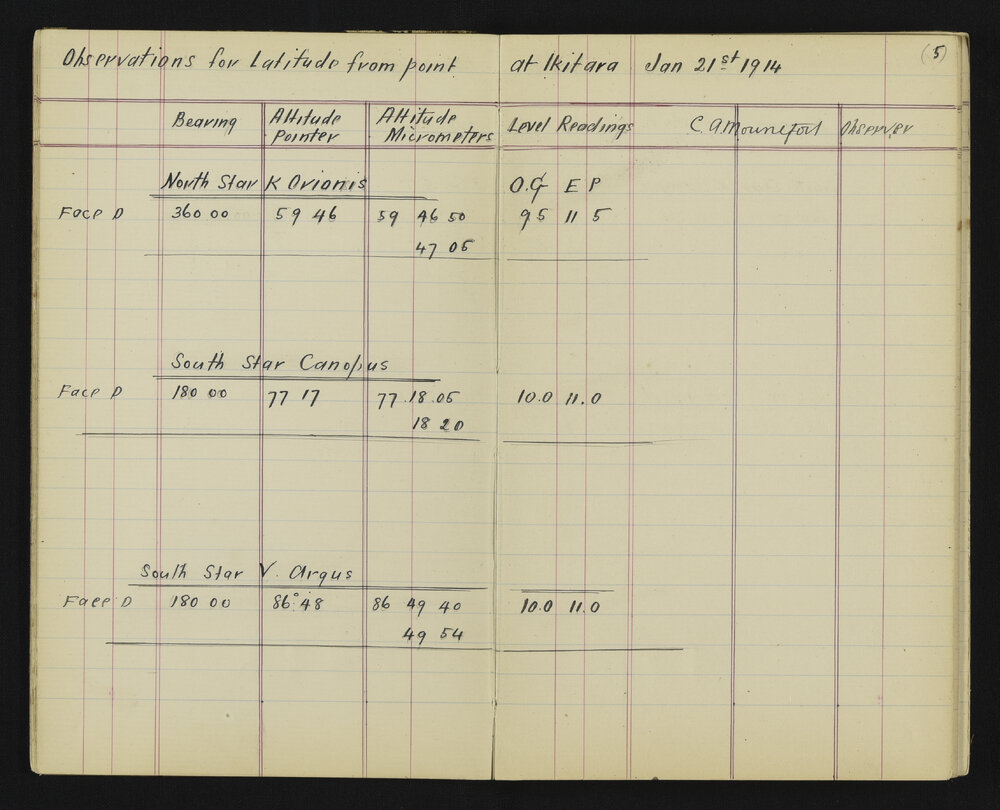 (5)
Observations for Latitude from point at Ikitara Jan 21st 1914
Bearing Altitude Pointer Altitude Micrometers Level Readings C. A. Mountfort Observer
North Star K Orionis O.G E P
Face D 360 00 59 46 59 46 50 9 5 11 5
47 05
South Star Canopus
Face D 180 00 77 17 77 18 05 10.0 11.0
18 20
South Star V. Argus
Face D 180 00 86° 48 86 49 40 10.0 11.0
49 54